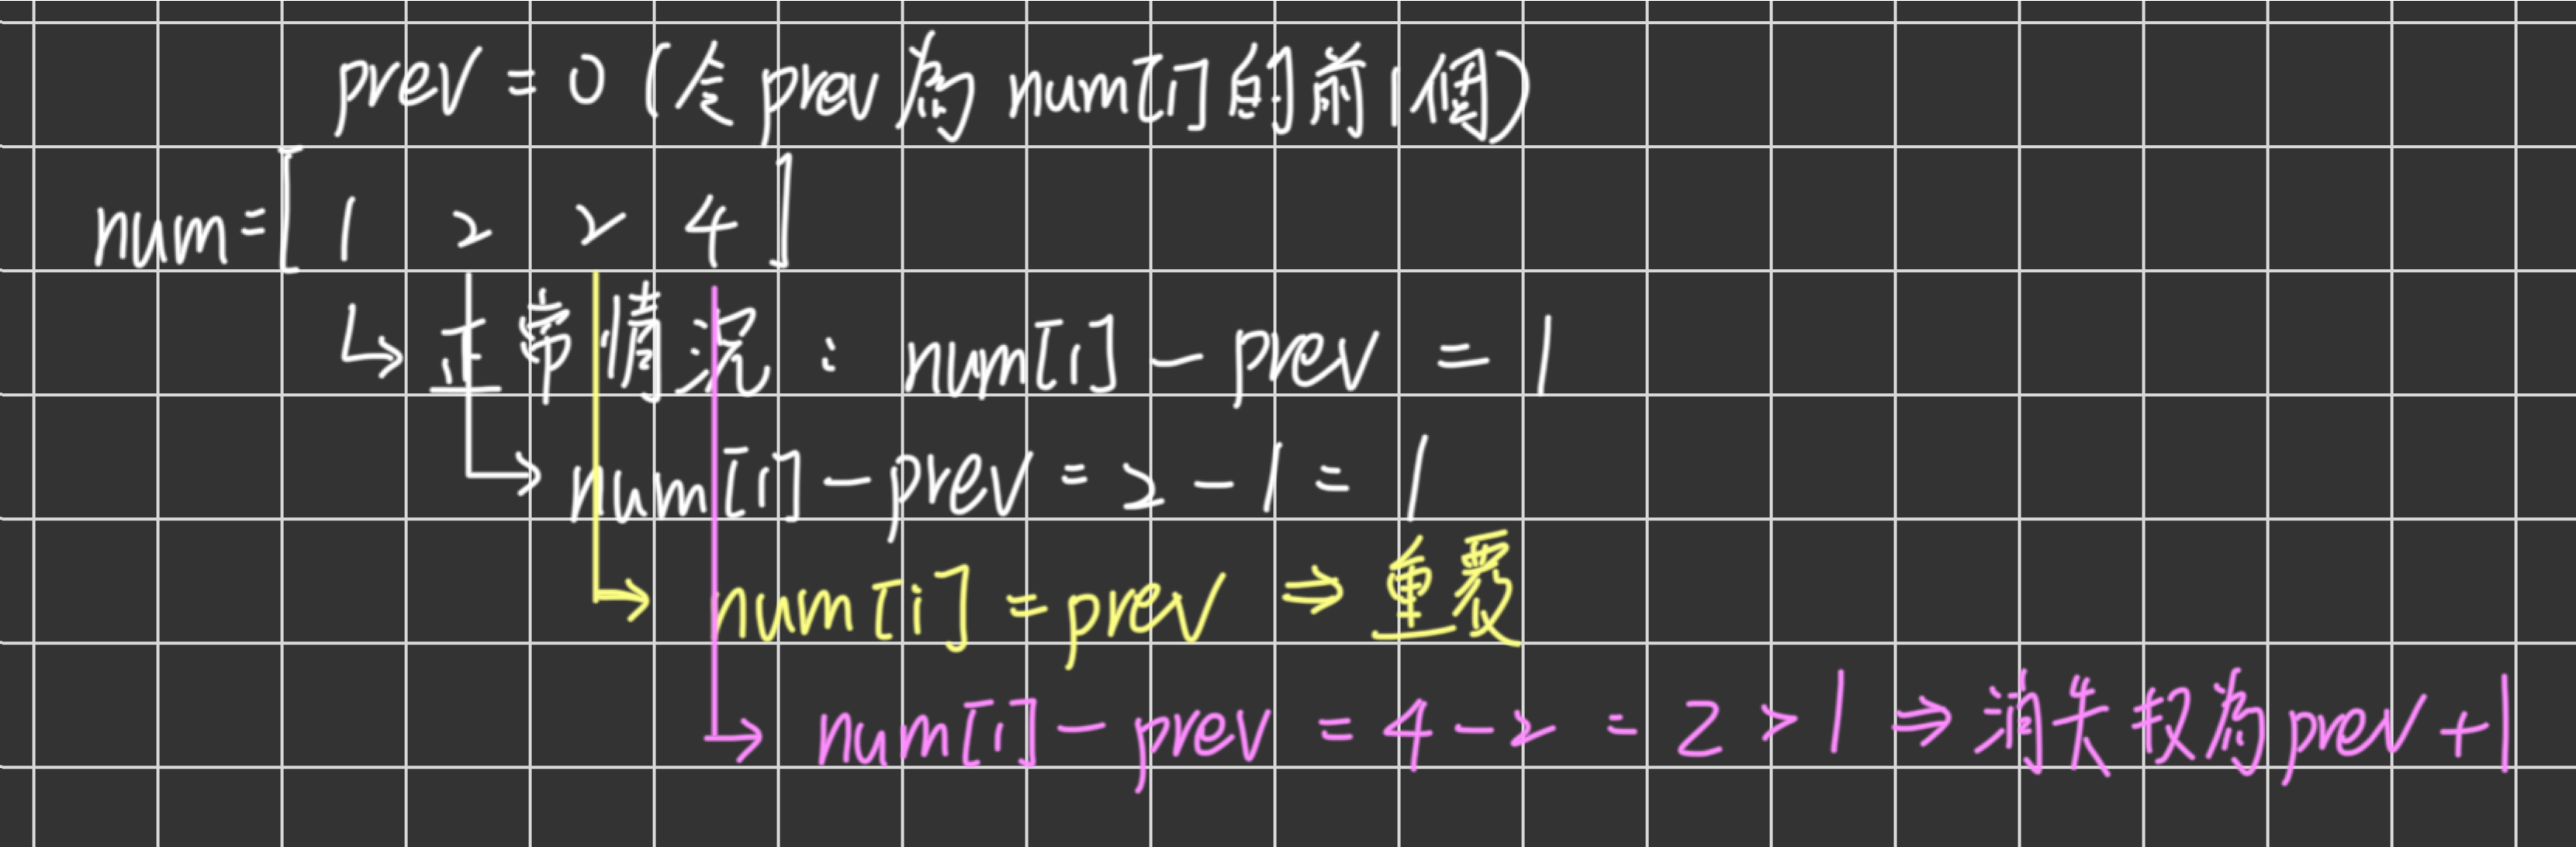 prev = 0 (令 prev 為 num[i] 的前1個)
num = [ 1 2 2 4 ]
↳ 正常情況 : num[i] - prev = 1
↳ num[i] - prev = 2 - 1 = 1
↳ num[i] = prev ⇒ 重覆
↳ num[i] - prev = 4 - 2 = 2 > 1 ⇒ 消失 為 prev + 1